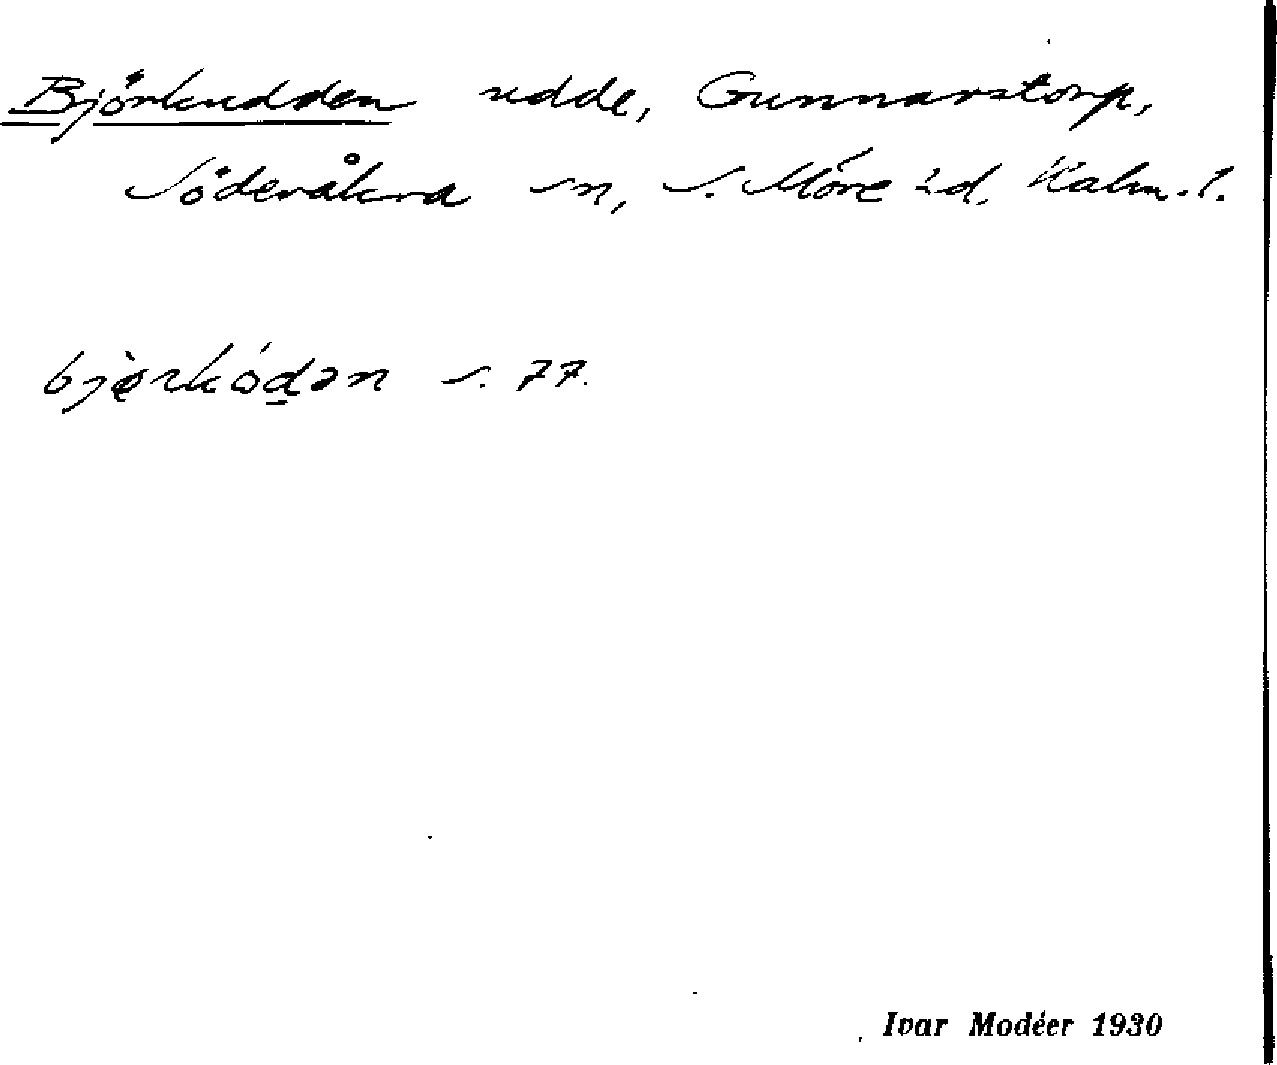 Björkudden udde, Gunnarstorp,
Söderåkra sn, S. Möre hd, Kalm. l.
bjèrkóḏən s. 77.
Ivar Modéer 1930